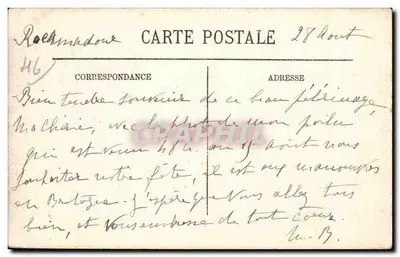 Rocamadour
CARTE POSTALE
28 Aout
46
CORRESPONDANCE
ADRESSE
Bien tendre souvenir de ce beau pélérinage,
avec la photo de mon poilu
qui est venu 48h au 15 aout nous
souhaiter notre fête, il est aux manoeuvres
en Bretagne. J'espère que vous allez tous
bien, et vous embrasse de tout coeur.
M. B.
CPAPHIL